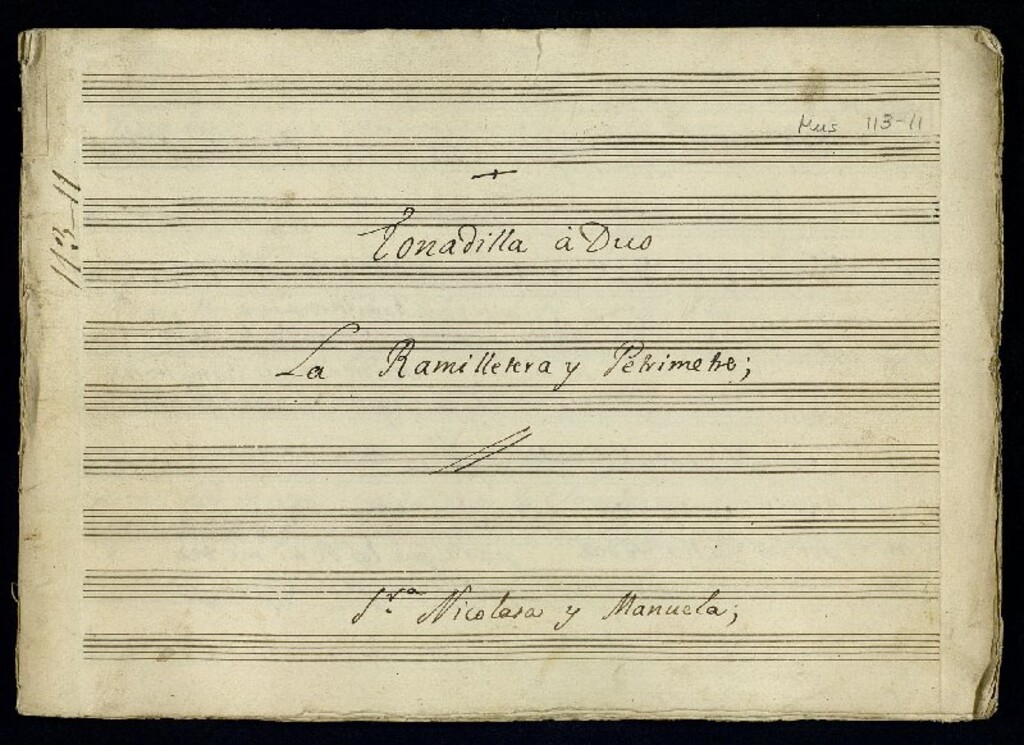 Mus 113-11
113-11
Tonadilla à Duo
La Ramilletera y Petrimetre;
S.ra Nicolasa y Manuela;